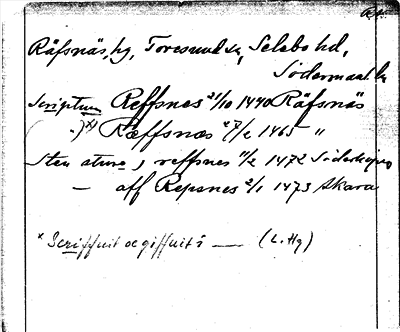 Räfsnäs, hg, Toresund sn, Selebo hd,
Södermanl. l.
Scriptum Reffsnes 21/10 1440 Räfsnäs
( „ )x) Ræffsnæs 27/2 1465 "
Sten sture, reffsnes 11/2 1472 Söderköping
— aff Repsnes 2/1 1473 Skara
x Scriffuit oc giffuit i — (L. Hg)